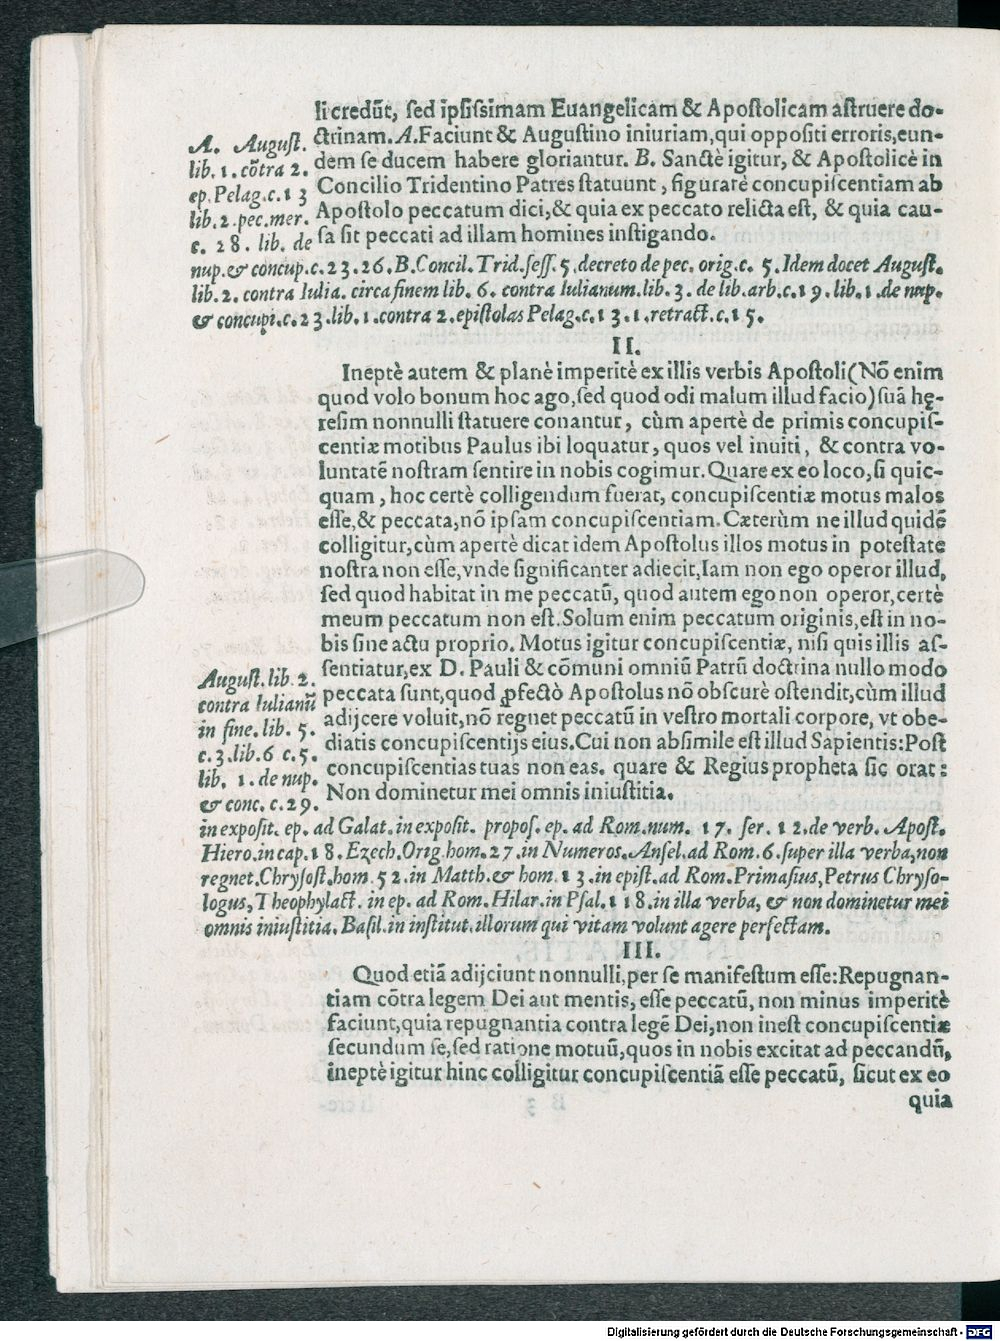 li credũt, sed ipsissimam Euangelicam & Apostolicam astruere do-
ctrinam. A. Faciunt & Augustino iniuriam, qui oppositi erroris, eun-
dem se ducem habere gloriantur. B. Sanctè igitur, & Apostolicè in
Concilio Tridentino Patres statuunt, figuratè concupiscentiam ab
Apostolo peccatum dici, & quia ex peccato relicta est, & quia cau-
sa sit peccati ad illam homines instigando.
A. August.
lib. 1. cõtra 2.
ep. Pelag. c. 13
lib. 2. pec. mer.
c. 28. lib. de
nup. & concup. c. 23. 26. B. Concil. Trid. sess. 5. decreto de pec. orig. c. 5. Idem docet August.
lib. 2. contra Iulia. circa finem lib. 6. contra Iulianum. lib. 3. de lib. arb. c. 19. lib. 1. de nup.
& concupi. c. 23. lib. 1. contra 2. epistolas Pelag. c. 13. 1. retract. c. 15.
II.
Ineptè autem & planè imperitè ex illis verbis Apostoli (Nõ enim
quod volo bonum hoc ago, sed quod odi malum illud facio) suã hę-
resim nonnulli statuere conantur, cùm apertè de primis concupis-
centiæ motibus Paulus ibi loquatur, quos vel inuiti, & contra vo-
luntatẽ nostram sentire in nobis cogimur. Quare ex eo loco, si quic-
quam, hoc certè colligendum fuerat, concupiscentiæ motus malos
esse, & peccata, nõ ipsam concupiscentiam. Cæterùm ne illud quidẽ
colligitur, cùm apertè dicat idem Apostolus illos motus in potestate
nostra non esse, vnde significanter adiecit, Iam non ego operor illud,
sed quod habitat in me peccatũ, quod autem ego non operor, certè
meum peccatum non est. Solum enim peccatum originis, est in no-
bis sine actu proprio. Motus igitur concupiscentiæ, nisi quis illis as-
sentiatur, ex D. Pauli & cõmuni omniũ Patrũ doctrina nullo modo
peccata sunt, quod ꝓfectò Apostolus nõ obscurè ostendit, cùm illud
adijcere voluit, nõ regnet peccatũ in vestro mortali corpore, vt obe-
diatis concupiscentijs eius. Cui non absimile est illud Sapientis: Post
concupiscentias tuas non eas. quare & Regius propheta sic orat:
Non dominetur mei omnis iniustitia.
August. lib. 2.
contra Iulianũ
in fine. lib. 5.
c. 3. lib. 6 c. 5.
lib. 1. de nup.
& conc. c. 29.
in exposit. ep. ad Galat. in exposit. propos. ep. ad Rom. num. 17. ser. 12. de verb. Apost.
Hiero. in cap. 18. Ezech. Orig. hom. 27. in Numeros. Ansel. ad Rom. 6. super illa verba, non
regnet. Chrysost. hom. 52. in Matth. & hom. 13. in epist. ad Rom. Primasius, Petrus Chryso-
logus, Theophylact. in ep. ad Rom. Hilar. in Psal. 118. in illa verba, & non dominetur mei
omnis iniustitia. Basil. in institut. illorum qui vitam volunt agere perfectam.
III.
Quod etiã adijciunt nonnulli, per se manifestum esse: Repugnan-
tiam cõtra legem Dei aut mentis, esse peccatũ, non minus imperitè
faciunt, quia repugnantia contra legẽ Dei, non inest concupiscentiæ
secundum se, sed ratione motuũ, quos in nobis excitat ad peccandũ,
ineptè igitur hinc colligitur concupiscentiã esse peccatũ, sicut ex eo
quia
Digitalisierung gefördert durch die Deutsche Forschungsgemeinschaft - DFG